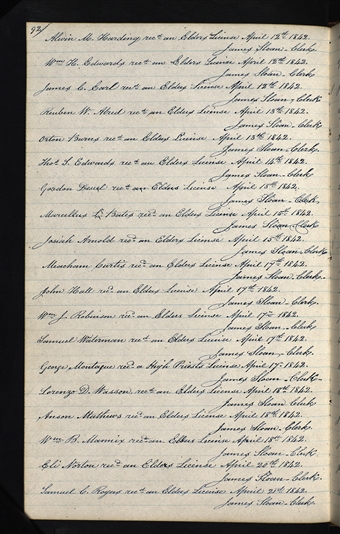 92
Alvin M. Harding recd. an Elders License April 12th. 1842.
James Sloan, Clerk.
Wm. H. Edwards recd. an Elders License April 13th. 1842.
James Sloan, Clerk.
James C. Earl recd. an Elders License April 12th. 1842.
James Sloan, Clerk.
Reuben W. Alred recd. an Elders License April 13th. 1842.
James Sloan, Clerk.
Orton Burns recd. an Elders License April 13th. 1842.
James Sloan, Clerk.
Thos. S. Edwards recd. an Elders License April 14th. 1842.
James Sloan, Clerk.
Gordon Deuel recd. an Elders License April 15th. 1842.
James Sloan, Clerk.
Marcellus Bates recd. an Elders License April 15th. 1842.
James Sloan, Clerk.
Josiah Arnold recd. an Elders License April 15th. 1842.
James Sloan, Clerk.
Meacham Curtis recd. an Elders License April 17th. 1842.
James Sloan, Clerk.
John Hatt recd. an Elders License April 17th. 1842.
James Sloan, Clerk.
Wm. J. Robinson recd. an Elders License April 17th. 1842.
James Sloan, Clerk.
Samuel Waterman recd. an Elders License April 17th. 1842.
James Sloan, Clerk.
George Montague recd. a High Priests License April 17. 1842.
James Sloan, Clerk.
Lorenzo D. Wasson recd. an Elders License April 18th. 1842.
James Sloan, Clerk.
Anson Matthews recd. an Elders License April 18th. 1842.
James Sloan, Clerk.
Wm. B. recd. an Elders License April 18th. 1842.
James Sloan, Clerk.
Eli Norton recd. an Elders License April 20th. 1842.
James Sloan, Clerk.
Samuel C. recd. an Elders License April 21st. 1842.
James Sloan, Clerk.